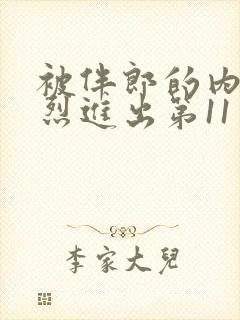 被伴郎的内
烈進出第11
李家大兒